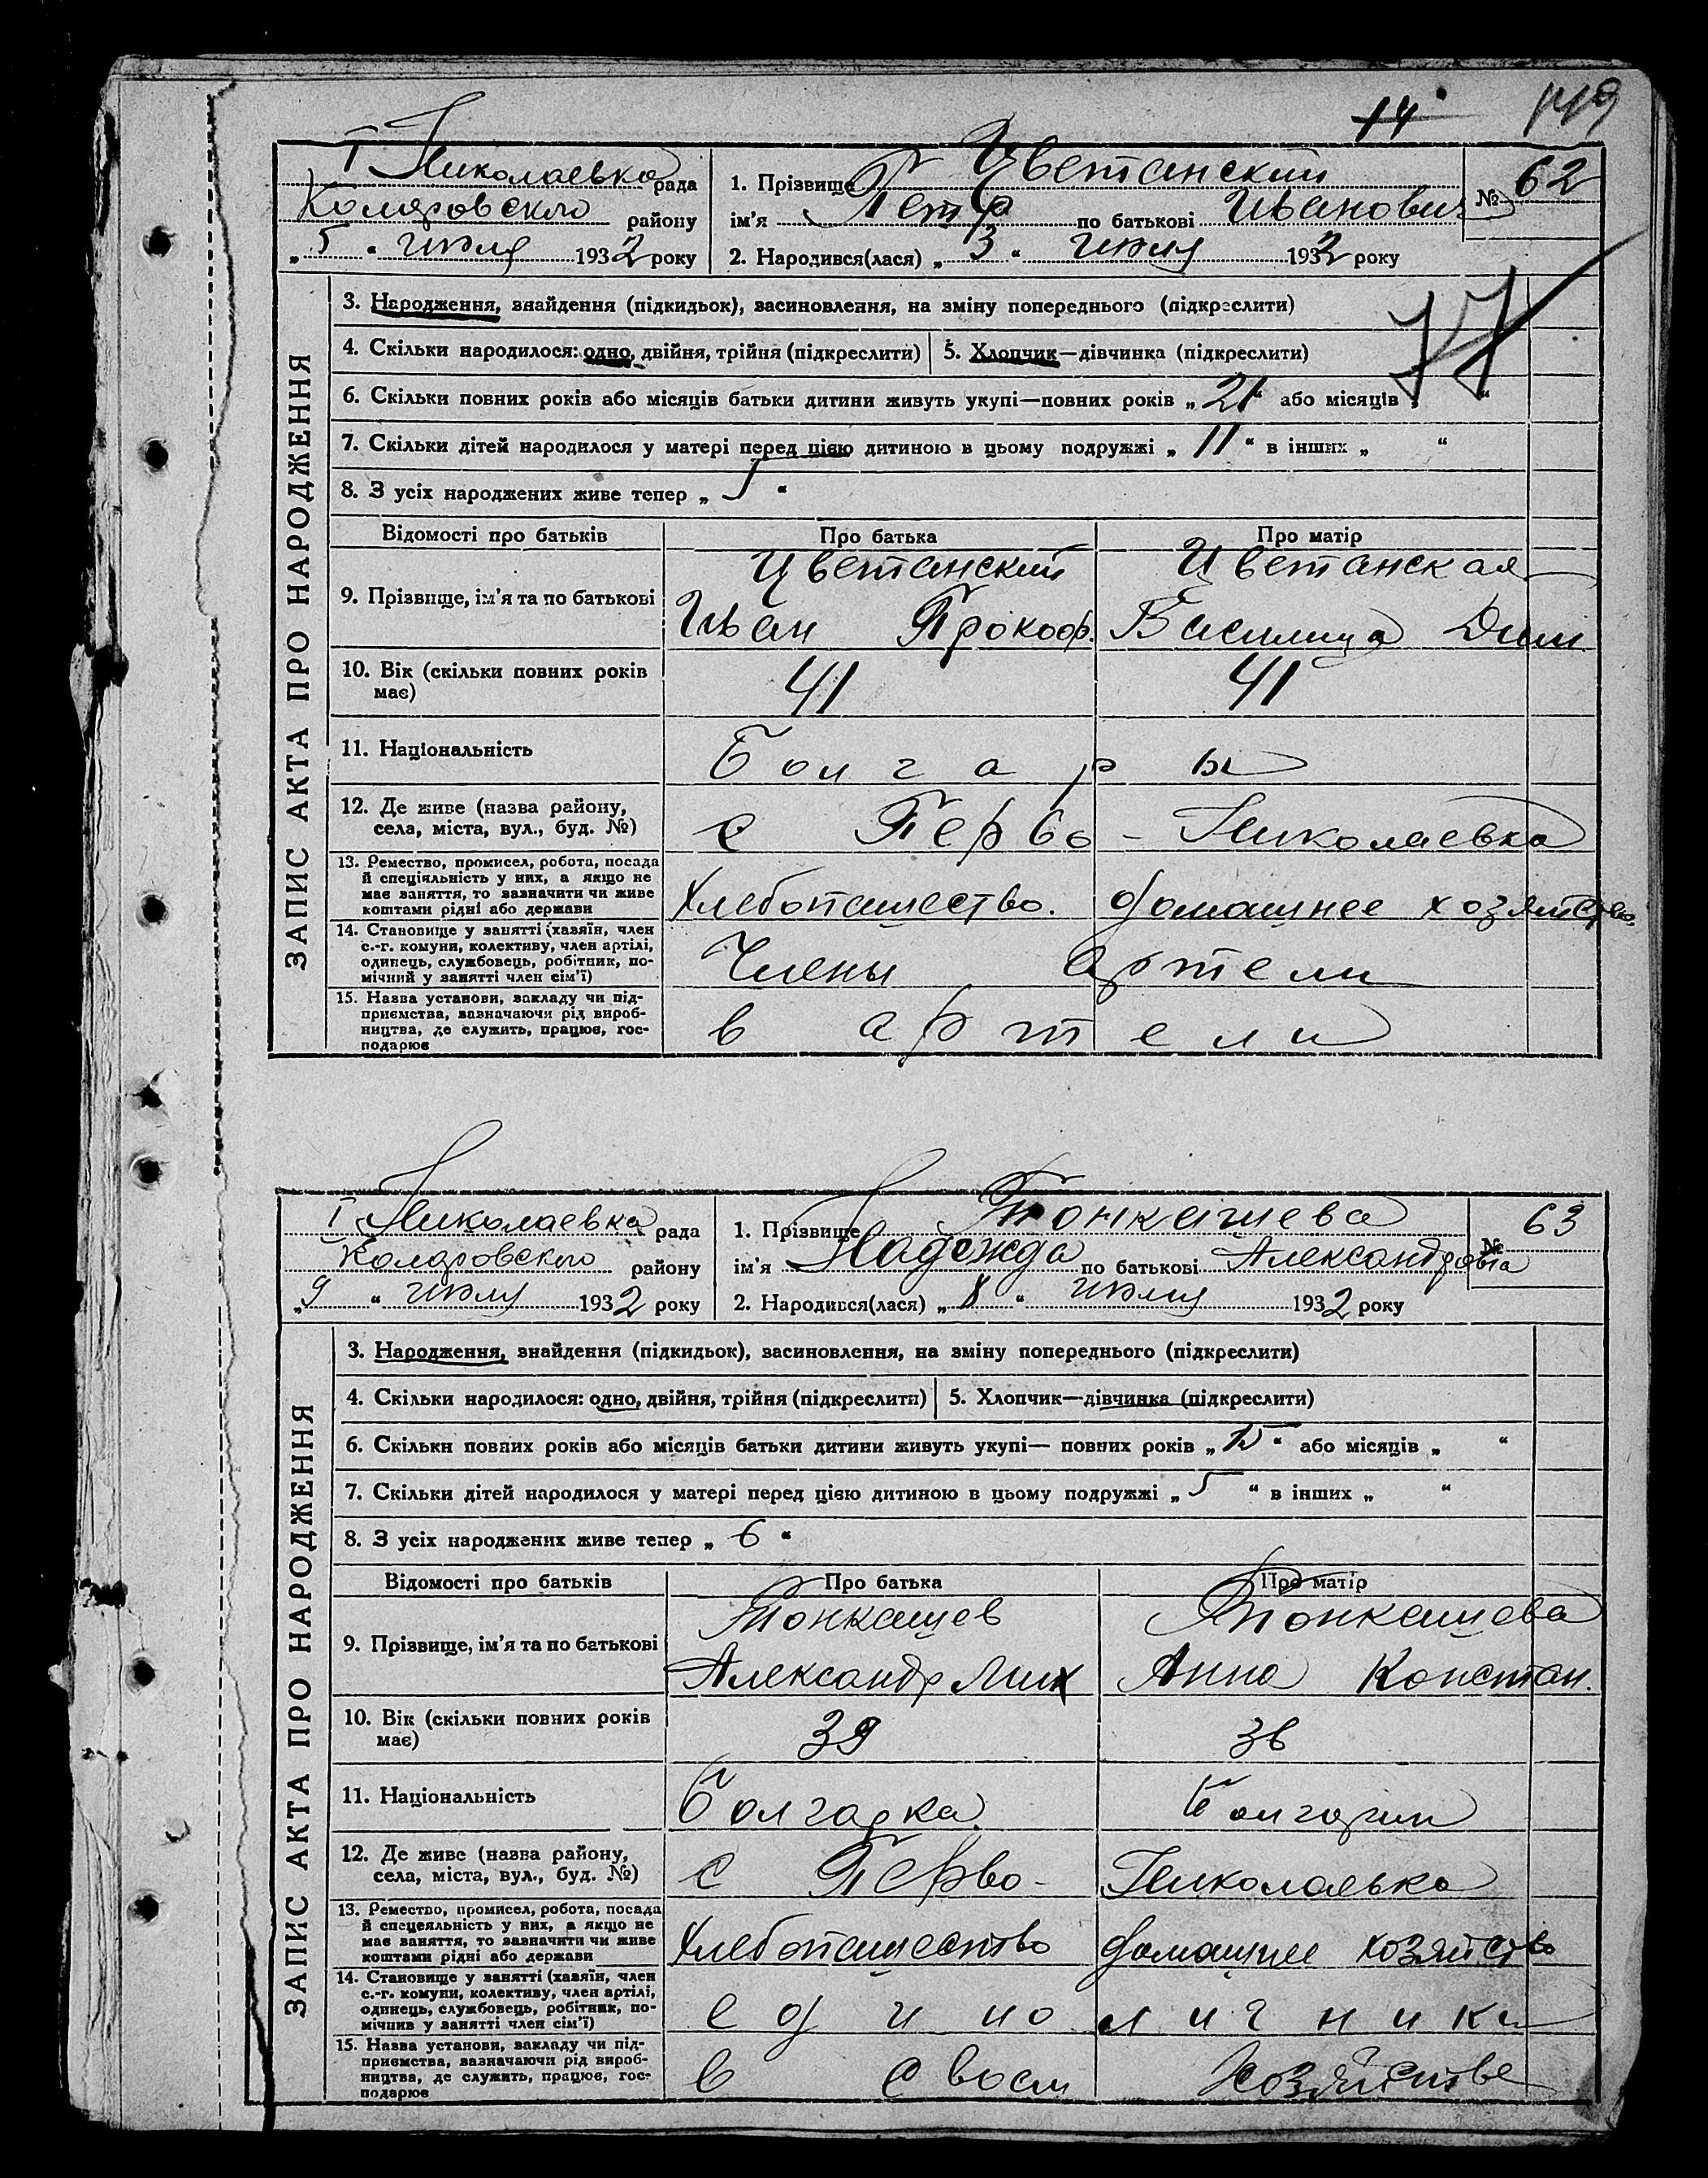 14
149
I Николаевка рада
Коларовского району
„ 5 “ июля 1932 року
1. Прізвище Цветанский
ім'я Петр по батькові Иванович
2. Народився(лася) „ 3 “ июля 1932 року
№ 62
ЗАПИС АКТА ПРО НАРОДЖЕННЯ
3. Народження, знайдення (підкидьок), засиновлення, на зміну попереднього (підкреслити)
4. Скільки народилося: одно, двійня, трійня (підкреслити) 5. Хлопчик—дівчинка (підкреслити)
6. Скільки повних років або місяців батьки дитини живуть укупі—повних років „ 21 “ або місяців „ “
7. Скільки дітей народилося у матері перед цією дитиною в цьому подружжі „ 11 “ в інших „ “
8. З усіх народжених живе тепер „ 5 “
Відомості про батьків Про батька Про матір
9. Прізвище, ім'я та по батькові
Цветанский Цветанская
Иван Прокоф. Василица Дим
10. Вік (скільки повних років має) 41 41
11. Національність Болгары
12. Де живе (назва району, села, міста, вул., буд. №) с Перво-Николаевка
13. Ремество, промисел, робота, посада
й спеціяльність у них, а якщо не
має заняття, то зазначити чи живе
коштами рідні або держави
Хлебопашество. домашнее хозяйство
14. Становище у занятті (хазяїн, член
с.-г. комуни, колективу, член артілі,
одинець, службовець, робітник, по-
мічний у занятті член сім'ї)
Члены артели
15. Назва установи, закладу чи під-
приємства, зазначаючи рід вироб-
ництва, де служить, працює, гос-
подарює
в артели
I Николаевка рада
Коларовского району
„ 9 “ июля 1932 року
1. Прізвище Тонкашева
ім'я Надежда по батькові Александровна
2. Народився(лася) „ 8 “ июля 1932 року
№ 63
ЗАПИС АКТА ПРО НАРОДЖЕННЯ
3. Народження, знайдення (підкидьок), засиновлення, на зміну попереднього (підкреслити)
4. Скільки народилося: одно, двійня, трійня (підкреслити) 5. Хлопчик—дівчинка (підкреслити)
6. Скільки повних років або місяців батьки дитини живуть укупі— повних років „ 15 “ або місяців „ “
7. Скільки дітей народилося у матері перед цією дитиною в цьому подружжі „ 5 “ в інших „ “
8. З усіх народжених живе тепер „ 6 “
Відомості про батьків Про батька Про матір
9. Прізвище, ім'я та по батькові
Тонкашев Тонкашева
Александр Мих Анна Констан.
10. Вік (скільки повних років має) 39 36
11. Національність Болгарка Болгарин
12. Де живе (назва району, села, міста, вул., буд. №) с Перво-Николаевка
13. Ремество, промисел, робота, посада
й спецеяльність у них, а якщо не
має заняття, то зазначити чи живе
коштами рідні або держави
Хлебопашество домашнее хозяйство
14. Становище у занятті (хазяїн, член
с.-г. комуни, колективу, член артілі,
одинець, службовець, робітник, по-
мічник у занятті член сім'ї)
единоличники
15. Назва установи, закладу чи під-
приємства, зазначаючи рід вироб-
ництва, де служить, працює, гос-
подарює
в своем хозяйстве